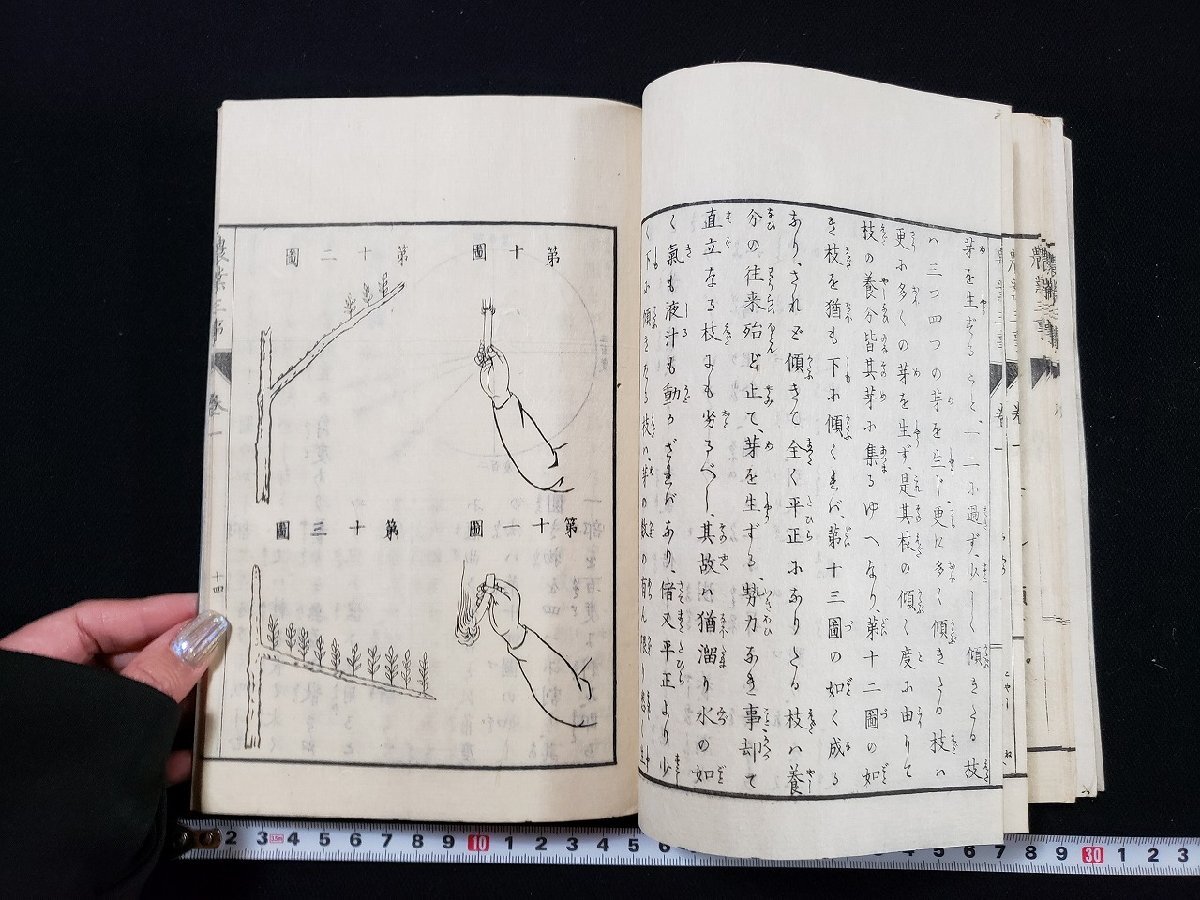 芽を生ずること、一二に過ず、少しく傾きたる枝
ハ三つ四つの芽を生じ更に多く傾きたる枝ハ
更に多くの芽を生ず、是其枝の傾く度に由りて
枝の養分皆其芽に集るゆへなり、第十二圖の如
き枝を猶も下に傾くれバ、第十三圖の如く成る
なり、されど傾きて全く平正になりたる枝ハ養
分の往来殆ど止て、芽を生ずる、勢力なき事却て
直立なる枝にも劣るべし、其故ハ猶溜り水の如
く氣も液汁も動かざれバなり、偖又平正より少
く下に傾きたる枝ハ、芽の数の有ん限り
第十圖
第十二圖
第十一圖
第十三圖
農業三事
巻一
十四